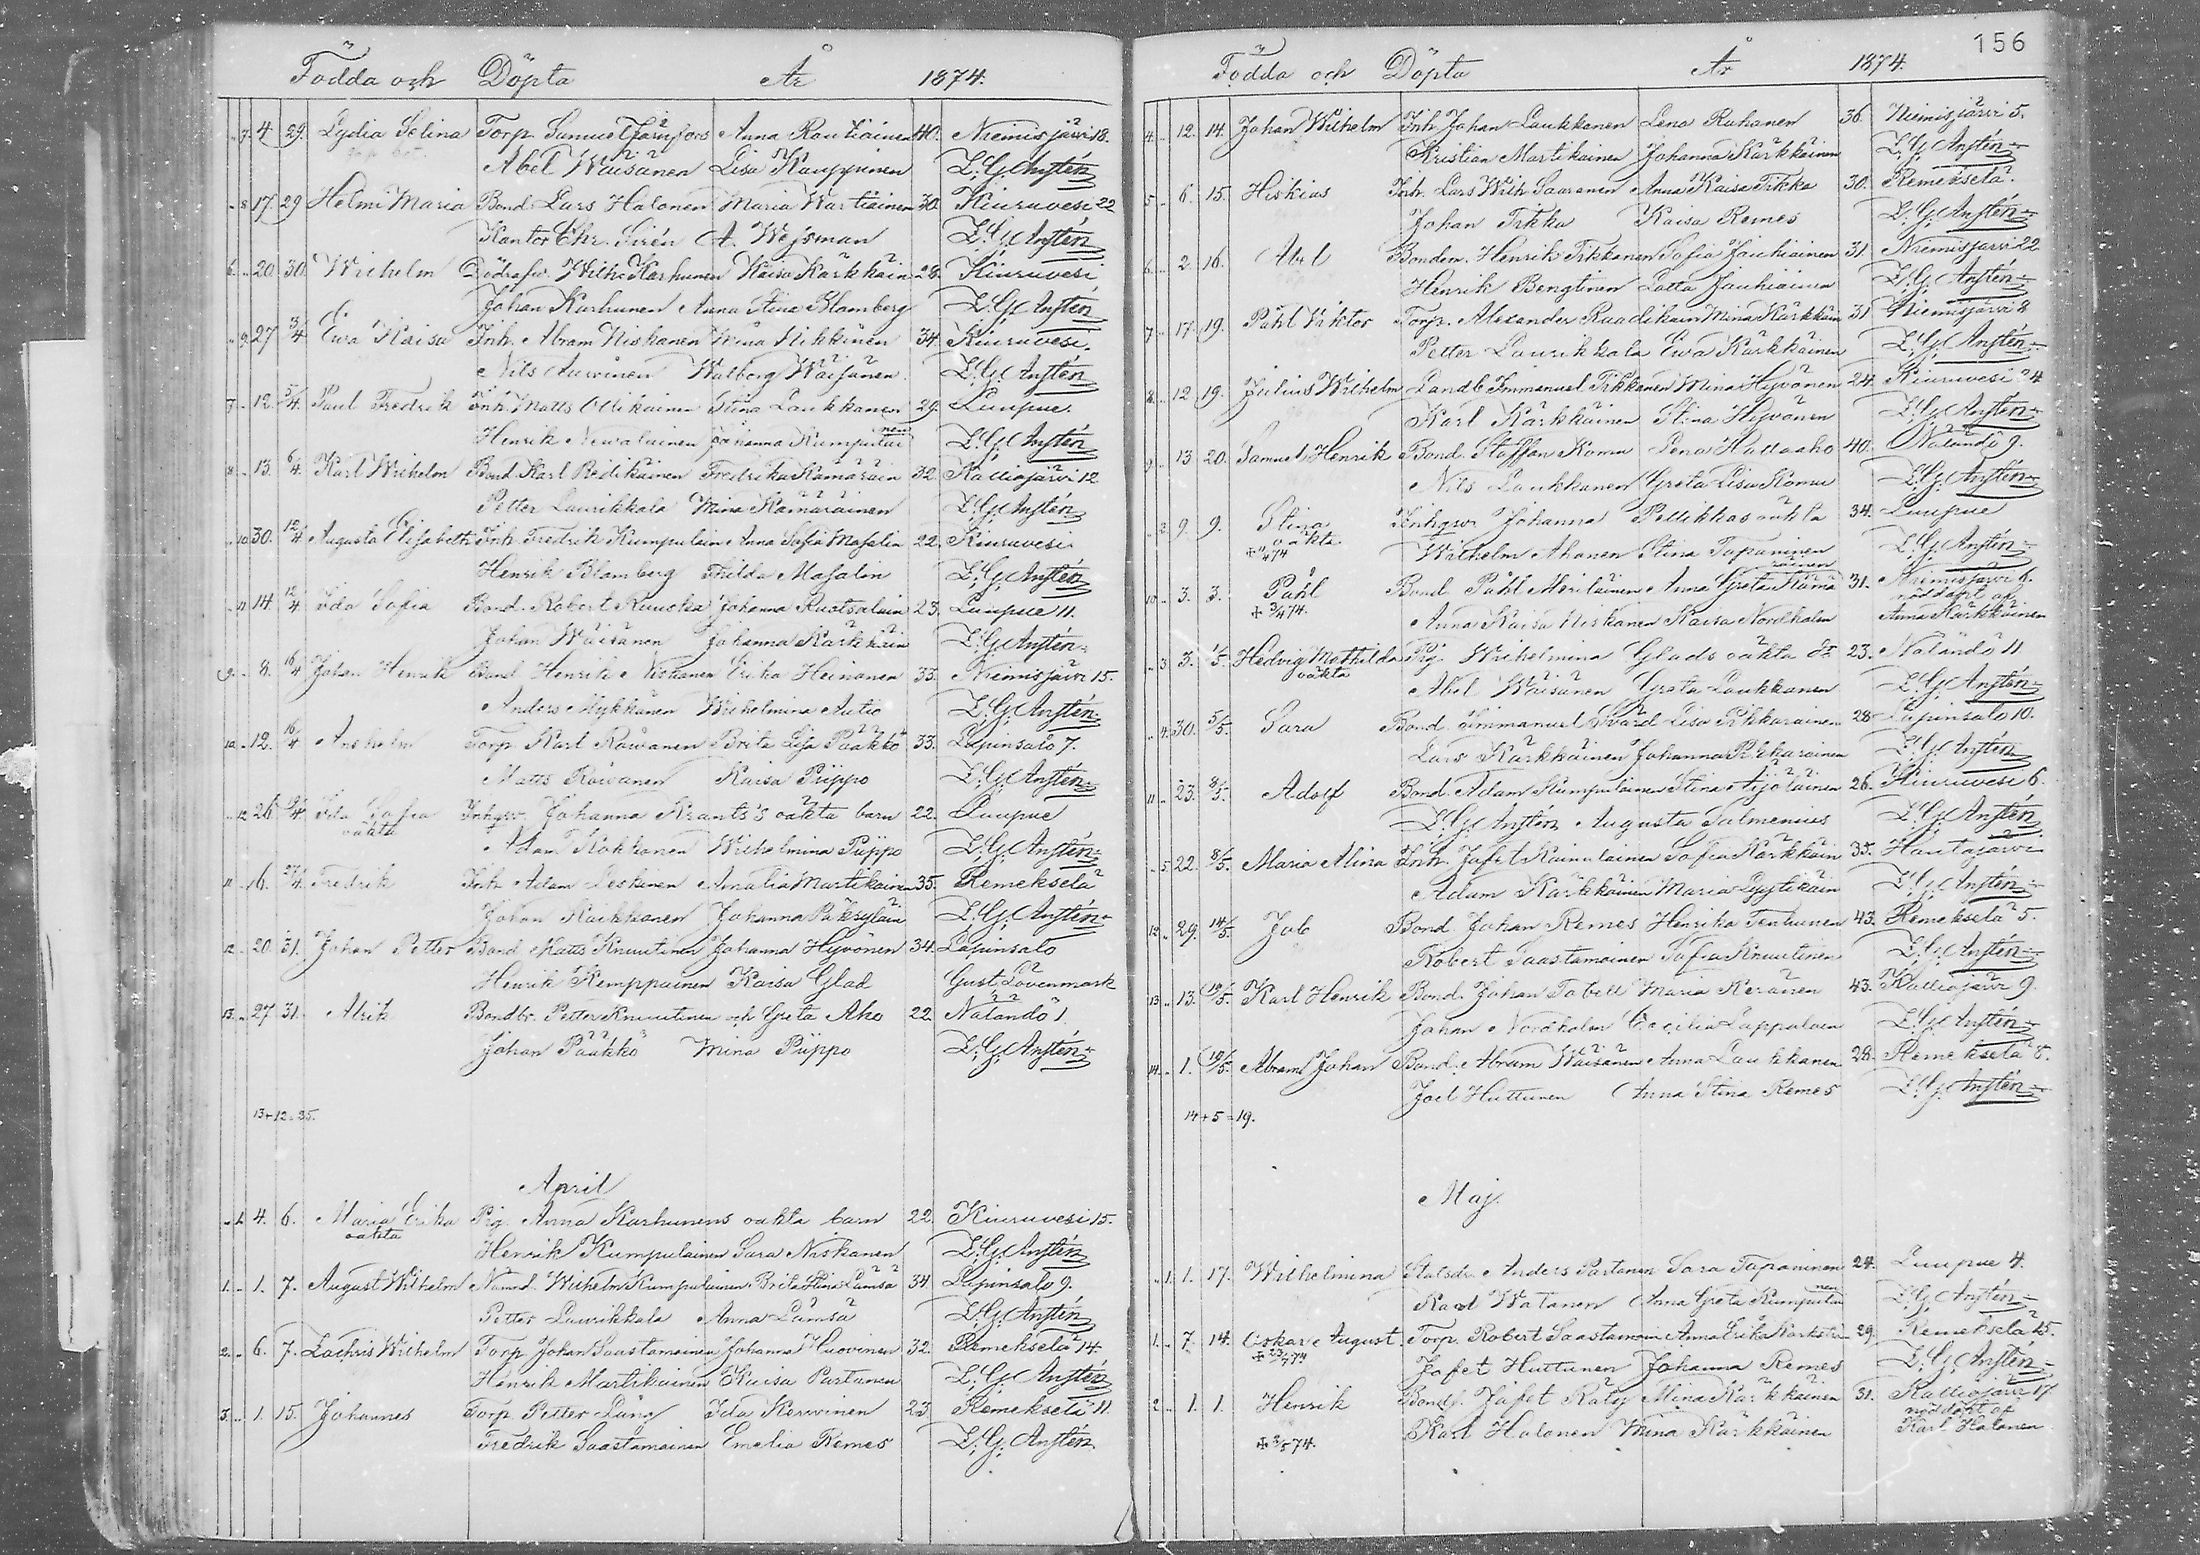 Födda och Döpta År 1874.
7 4 29. Lydia Selina Torp. Samuel Anna Rautiäinen 40. Niemisjärvi 18.
Abel Wäisänen Lisa Kauppinen L. G. Anstén
8 17. 29 Helmi Maria Bond. Lars Halonen Maria Wartiäinen 30. Kiuruvesi 22
Kantor Chr. Sirén A. Wejsman L. G. Anstén
6. 20. 30. Wilhelm Wilh. Karhunen Kaisa Kärkkäin 28. Kiuruvesi
Johan Karhunen Anna Stina Blomberg L. G. Anstén
9. 27 3/4 Ewa Kaisa Inh. Abram Niskanen Mina Nikkinen 34. Kiuruvesi.
Nils Auvinen Walborg Wäisänen L. G. Anstén
7. 12. 5/4. Paul Fredrik Inh. Matts Ollikainen Stina Laukkanen 29. Luupue.
Henrik Newalainen Johanna Kumpulainen L. G. Anstén
8. 13. 6/4. Karl Wilhelm Bond. Karl Fredrika Kämäräin 32. Kalliojärvi 12
Petter Laurikkala Mina Kämäräinen L. G. Anstén
10. 30. 12/4 Augusta Elisabeth Inh. Fredrik Kumpulain Anna Sofia Masalin 22. Kiuruvesi
Henrik Blomberg Thilda Masalin L. G. Anstén
11. 14. 12/4 Ida Sofia Bond. Robert Ruuska Johanna Ruotsalain 23. Luupue 11.
Johan Wäisänen Johanna Kärkkäin L. G. Anstén
9. 8. 16/4 Johan Henrik Bond Henrik Niskanen Erika Heinonen 33. Niemisjärvi 15.
Anders Mykkänen Wilhelmina Autio L. G. Anstén
10. 12. 16/4 Ansholm Torp. Karl Räwänen Brita Lisa Pääkkö 33. Lapinsalo 7.
Matts Räwänen Kaisa Piippo L. G. Anstén
12 26. Ida Sofia Inhgsr. Johanna Krants's oäkta barn 22. Luupue
oäkta
Adam Kokkonen Wilhelmina Piippo L. G. Anstén
11. 16. 27/4. Fredrik Inh Adam Leskinen Amalia Martikainen 35. Remekselä
Johan Kaikkonen Johanna L. G. Anstén
12. 20. 31. Johan Petter Bond Matts Knuutinen Johanna Hyvönen 34. Lapinsalo
Henrik Kemppainen Kaisa Glad Gust. Löwenmark
13. 27 31. Alrik Bondbr. Petter Knuutinen och Greta Aho 22. Näländö 1.
Johan Pääkkö Mina Piippo L. G. Anstén
13+12=25.
April
1. 4. 6. Maria Erika Pig. Anna Karhunens oäkta barn 22. Kiuruvesi 15.
oäkta
Henrik Kumpulainen Sara Niskanen L. G. Anstén
1. 1. 7. August Wilhelm Nämnd. Wilhelm Kumpulainen Brita Stina Lämsä 34. Lapinsalo 9.
Petter Laurikkala Anna Lämsä L. G. Anstén
2. 6. 7. Zachris Wilhelm Torp Johan Saastamoinen Johanna Huovinen 32. Remekselä 14.
Henrik Martikainen Kaisa Partanen L. G. Anstén
3. 1. 15. Johannes Torp. Petter Lång Ida Kervinen 23. Remekselä 11.
Fredrik Saastamoinen Emelia Remes L. G. Anstén
156
Födda och Döpta År 1874.
4. 12. 14. Johan Wilhelm Inh. Johan Laukkanen Lena Ruhanen 36. Niemisjärvi 5.
Kristian Martikainen Johanna Kärkkäinen L. G. Anstén
5. 6. 15. Hiskias Inh. Lars Wilh. Saaranen Anna Kaisa Tikka 30. Remekselä
Johan Tikka Kaisa Remes L. G. Anstén
6. 2. 16. Abel Bondem. Henrik Tikkanen Sofia Jauhiainen 31. Niemisjärvi 22
Henrik Bengtinen Lotta Jauhiainen L. G. Anstén
7. 17. 19. Påhl Viktor Torp. Alexander Raadikain Mina Kärkkäin 31 Niemisjärvi 8
Petter Laurikkala Ewa Kärkkäinen L. G. Anstén
8. 12 19. Julius Wilhelm Landb Immanuel Tikkanen Mina Hyvönen 24. Kiuruvesi 24.
Karl Kärkkäinen Stina Hyvönen L. G. Anstén
9. 13 20. Samuel Henrik Bond. Staffan Komu Lena Hallaaho 40. Näländö 9.
Nils Laukkanen Greta Lisa Komu L. G. Anstén
2. 9. 9. Stina Inhgsr Johanna Pellikkas oäkta 34. Luupue
oäkta
Wilhelm Ahonen Stina Tapaninen L. G. Anstén
10. 3. 3. Påhl Bond Påhl Meriläinen Anna Greta Kämäräinen 31. Niemisjärvi 6.
✠ 3/4 74. nöddöpt af
Anna Kaisa Niskanen Kaisa Nordholm Anna Kärkkäinen
3. 3. 1/5. Hedvig Mathilda Pig. Wilhelmina Glads oäkta 23. Näländö 11
oäkta
Abel Wäisänen Greta Laukkanen L. G. Anstén
4. 30. 5/5. Sara Bond. Immanuel Svärd Lisa Pikkarainen 28. Lapinsalo 10.
Lars Kärkkäinen Johanna Pikkarainen L. G. Anstén
11. 23. 8/5. Adolf Bond. Adam Kumpulainen Stina Äijöläinen 26. Kiuruvesi 6.
L. G. Anstén Augusta Salmenius L. G. Anstén
5. 22. 8/5. Maria Alina Inh. Jafet Kainulainen Sofia Kärkkäin 35. Hautajärvi
Adam Kärkkäinen Maria Lyytikäin L. G. Anstén
12. 29. 14/5. Job Bond Johan Remes Henrika Tenhunen 43. Remekselä 5.
Robert Saastamoinen Sofia Knuutinen L. G. Anstén
13. 13. 19/5. Karl Henrik Bond. Johan Tabell Maria Keränen 43. Kalliojärvi 9.
Johan Nordholm Cecilia Lappalain L. G. Anstén
14. 1. 19/5. Abram Johan Bond. Abram Wäisänen Anna Laukkanen 28. Remekselä 8.
Joel Huttunen Anna Stina Remes L. G. Anstén
14+5=19.
Maj.
1. 1. 17. Wilhelmina Statsdr. Anders Partanen Sara Tapaninen 24. Luupue 4.
Karl Watanen Anna Greta Kumpulainen L. G. Anstén
1. 7. 14. Oskar August Torp. Robert Saastamoin Anna Erika 29. Remekselä 15.
Jafet Huttunen Johanna Remes L. G. Anstén
2. 1. 1. Henrik Bonds. Jafet Räty Mina Kärkkäinen 31. Kalliojärvi 17.
nöddöpt af
✠ 3/5 74. Karl Halonen Mina Kärkkäinen Karl Halonen